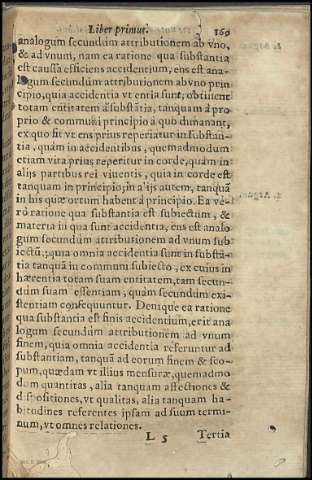 Liber primus. 169
analogum secundum attributionem ab vno,
& ad vnum, nam ea ratione qua substantia
est caussa efficiens accidentium, ens est ana-
logum secundum attributionem ab vno prin
cipio, quia accidentia vt entia sunt, obtinent
totam entitatem à substãtia, tanquam à pro
prio & communi principio à quo dimanant,
ex quo fit vt ens prius reperiatur in substan-
tia, quàm in accidentibus, quemadmodum
etiam vita prius reperitur in corde, quàm in
alijs partibus rei viuentis, quia in corde est
tanquam in principio, in alijs autem, tanquã
in his quæ ortum habent à principio. Ea ve-
rò ratione qua substantia est subiectum, &
materia in qua sunt accidentia, ens est analo
gum secundum attributionem ad vnum sub
iectũ, quia omnia accidentia sunt in substã-
tia tanquã in communi subiecto, ex cuius in
hærentia totam suam entitatem, tam secun-
dum suam essentiam, quàm secundum exi-
stentiam consequuntur. Denique ea ratione
qua substantia est finis accidentium, erit ana
logum secundum attributionem ad vnum
finem, quia omnia accidentia referuntur ad
substantiam, tanquã ad eorum finem & sco-
pum, quædam vt illius mensuræ, quemadmo
dum quantitas, alia tanquam affectiones &
dispositiones, vt qualitas, alia tanquam ha-
bitudines referentes ipsam ad suum termi-
num, vt omnes relationes.
L 5 Tertia